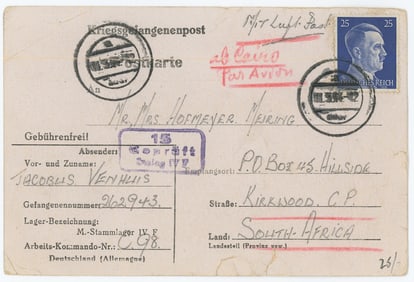 Kriegsgefangenenpost
Mit Luft Post
25 25
Postkarte
ab Cairo
Par Avion
Mr. Mrs Hofmeyer Meiring
Gebührenfrei!
15
Geprüft
Stalag IV F
Absender:
Empfangsort: P.O. Box 45 Hillside
Vor- und Zuname:
Jacobus Venhuis
Straße: Kirkwood. C.P.
Gefangenennummer: 262943.
Lager-Bezeichnung:
M.-Stammlager IV F
Land: South-Africa
Landesteil (Provinz usw.)
Arbeits-Kommando-Nr.: C.98.
Deutschland (Allemagne)
25/-